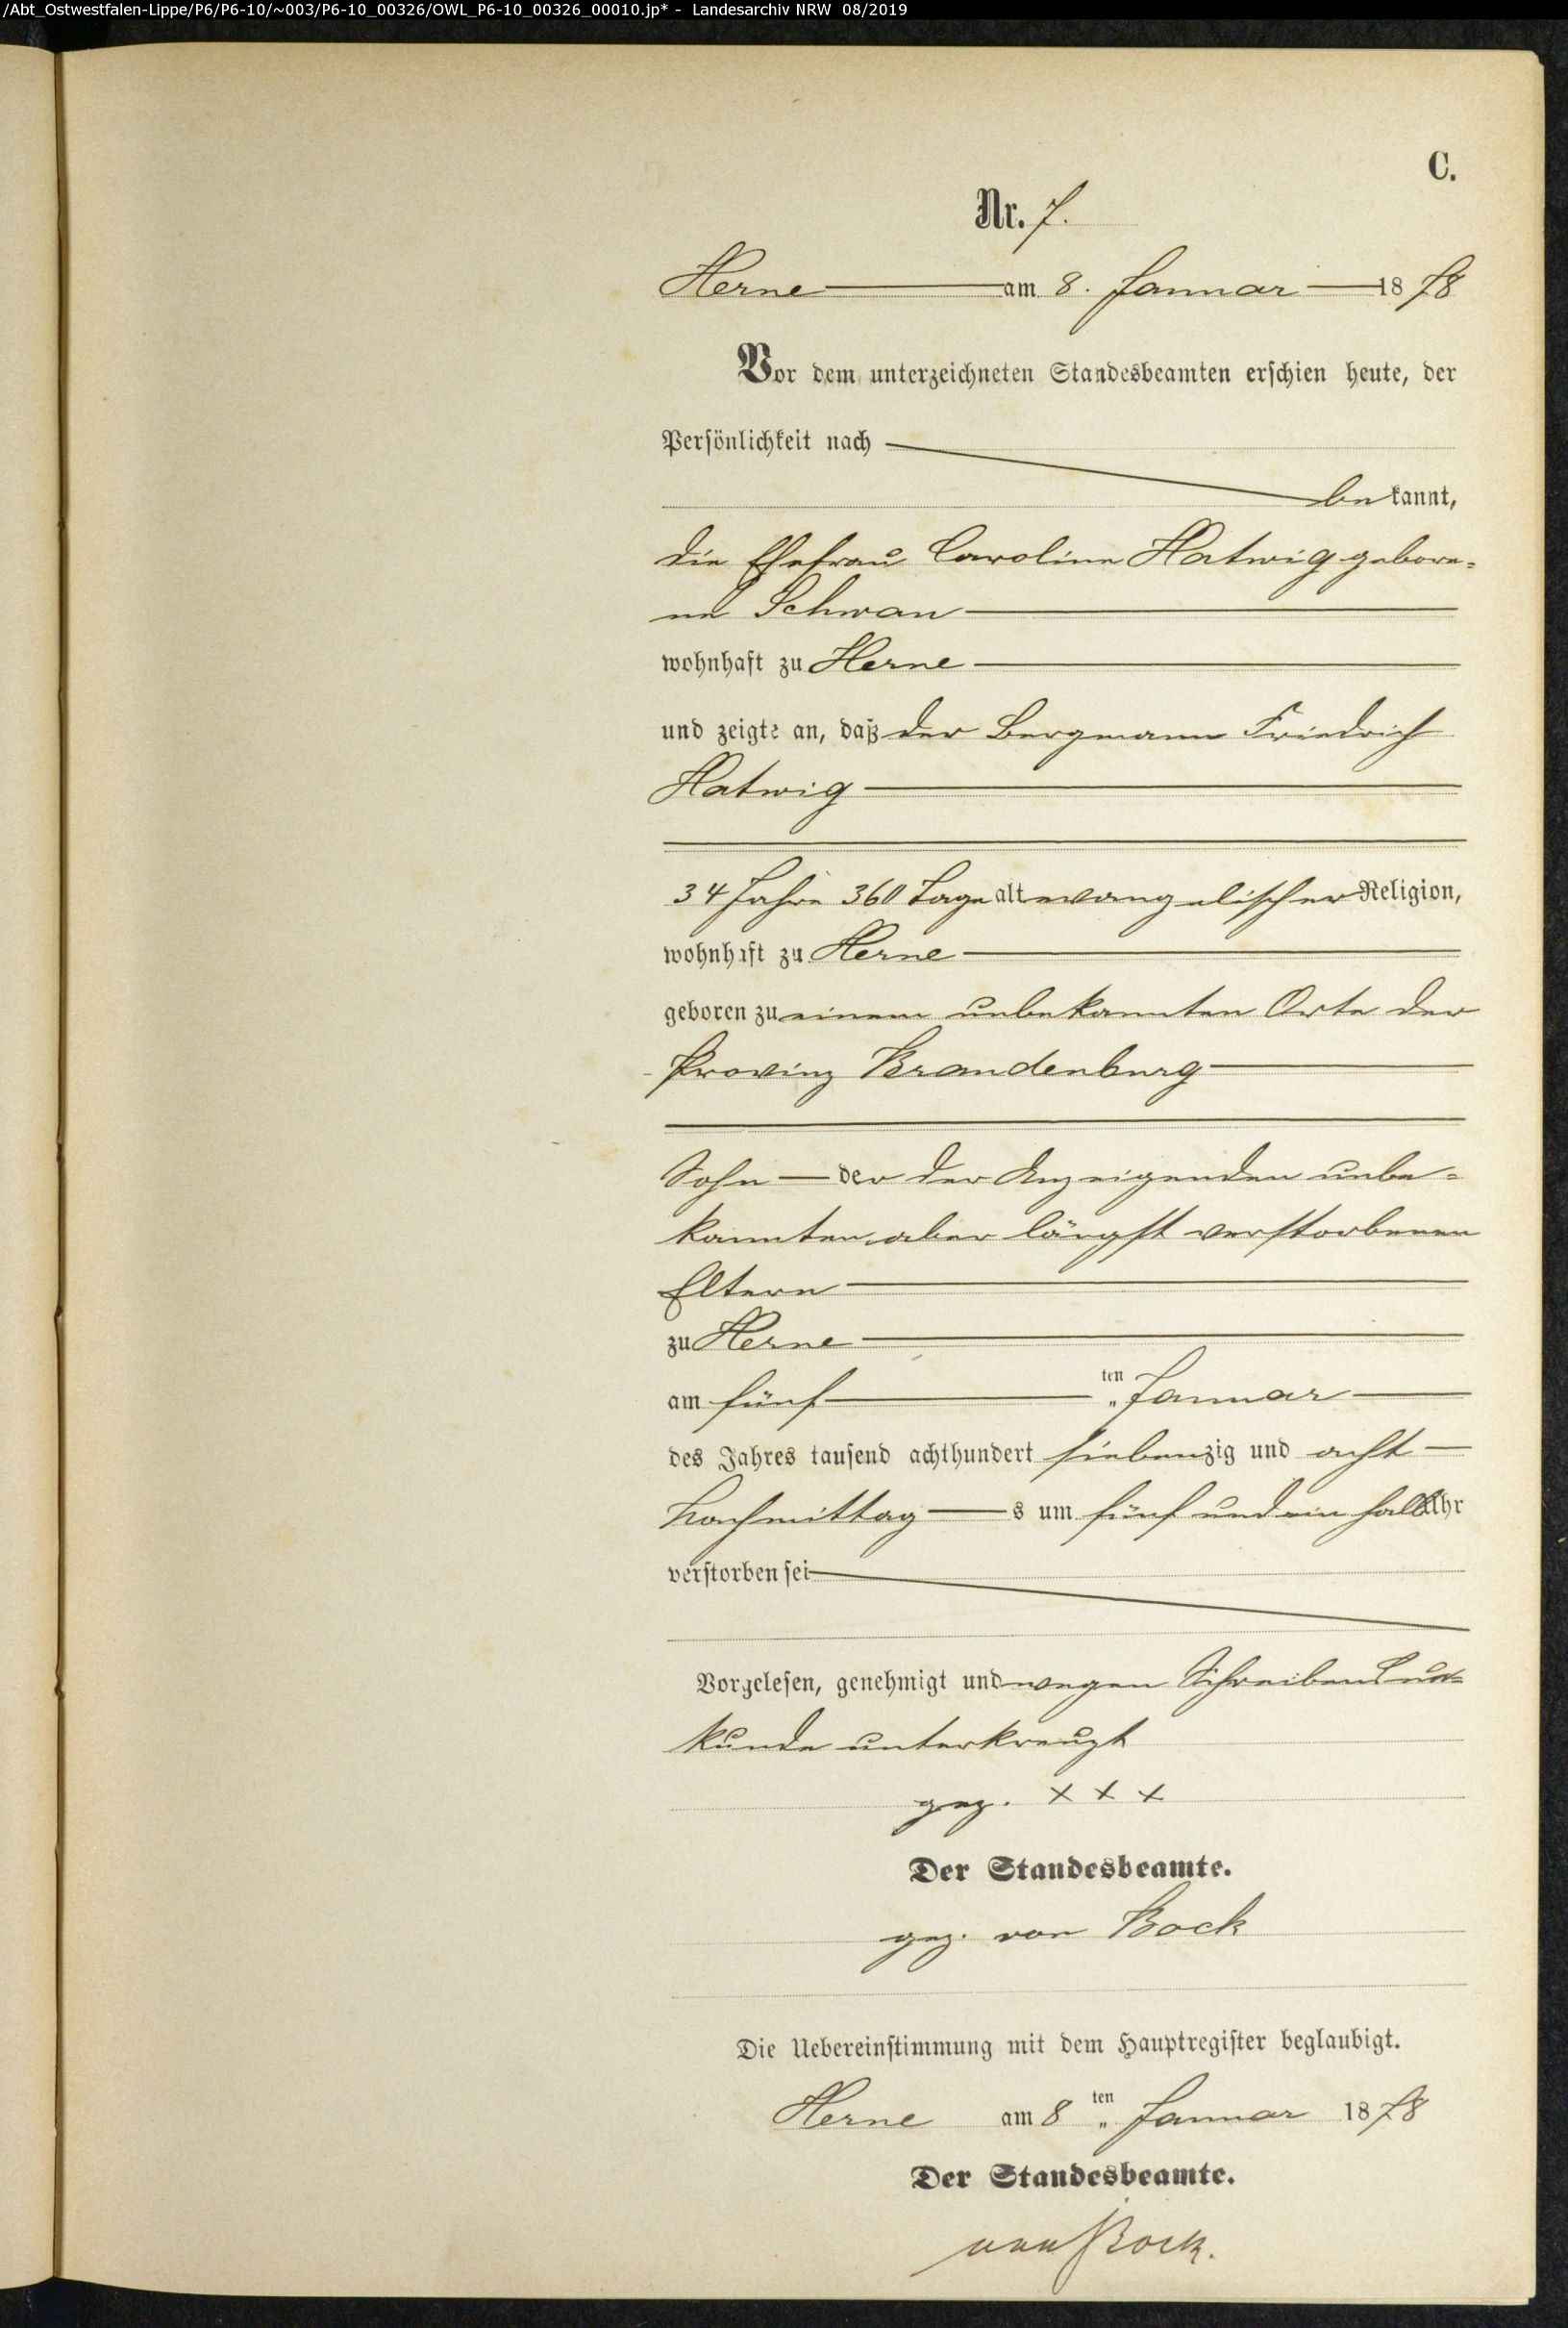 /Abt_Ostwestfalen-Lippe/P6/P6-10/~003/P6-10_00326/OWL_P6-10_00326_00010.jp* - Landesarchiv NRW 08/2019
C.
Nr. 7.
Herne am 8. Januar 1878
Vor dem unterzeichneten Standesbeamten erschien heute, der
Persönlichkeit nach
bekannt,
die Ehefrau Caroline Hatwig gebore-
ne Schwan
wohnhaft zu Herne
und zeigte an, daß der Bergmann Friedrich
Hatwig
34 Jahre 360 Tage alt evangelischer Religion,
wohnhaft zu Herne
geboren zu einem unbekannten Orte der
Provinz Brandenburg
Sohn der der Anzeigenden unbe-
kannten aber längst verstorbenen
Eltern
zu Herne
am fünften Januar
des Jahres tausend achthundert siebenzig und acht
Nachmittags um fünf und ein halb Uhr
verstorben sei
Vorgelesen, genehmigt und wegen Schreibens un-
kunde unterkreuzt
gez. x x x
Der Standesbeamte.
gez. von Bock
Die Uebereinstimmung mit dem Hauptregister beglaubigt.
Herne am 8ten Januar 1878
Der Standesbeamte.
von Bock.